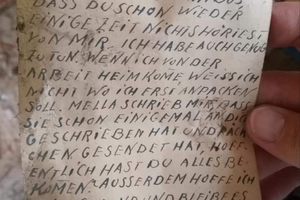 DASS DU SCHON WIEDER
EINIGE ZEIT NICHTS HÖRIEST
VON MIR. ICH HABE AUCH GENUG
ZU TUN. WENN ICH VON DER
ARBEIT HEIM KOME WEISS ICH
NICHT WO ICH ERST ANPACKEN
SOLL. MELLA SCHRIEB MIR, DASS
SIE SCHON EINIGEMAL AN DICH
GESCHRIEBEN HAT UND PÄCK
CHEN GESENDET HAT, HOFF-
ENTLICH HAST DU ALLES BE-
KOMEN. AUSSERDEM HOFFE ICH
UND BLEIBE ES